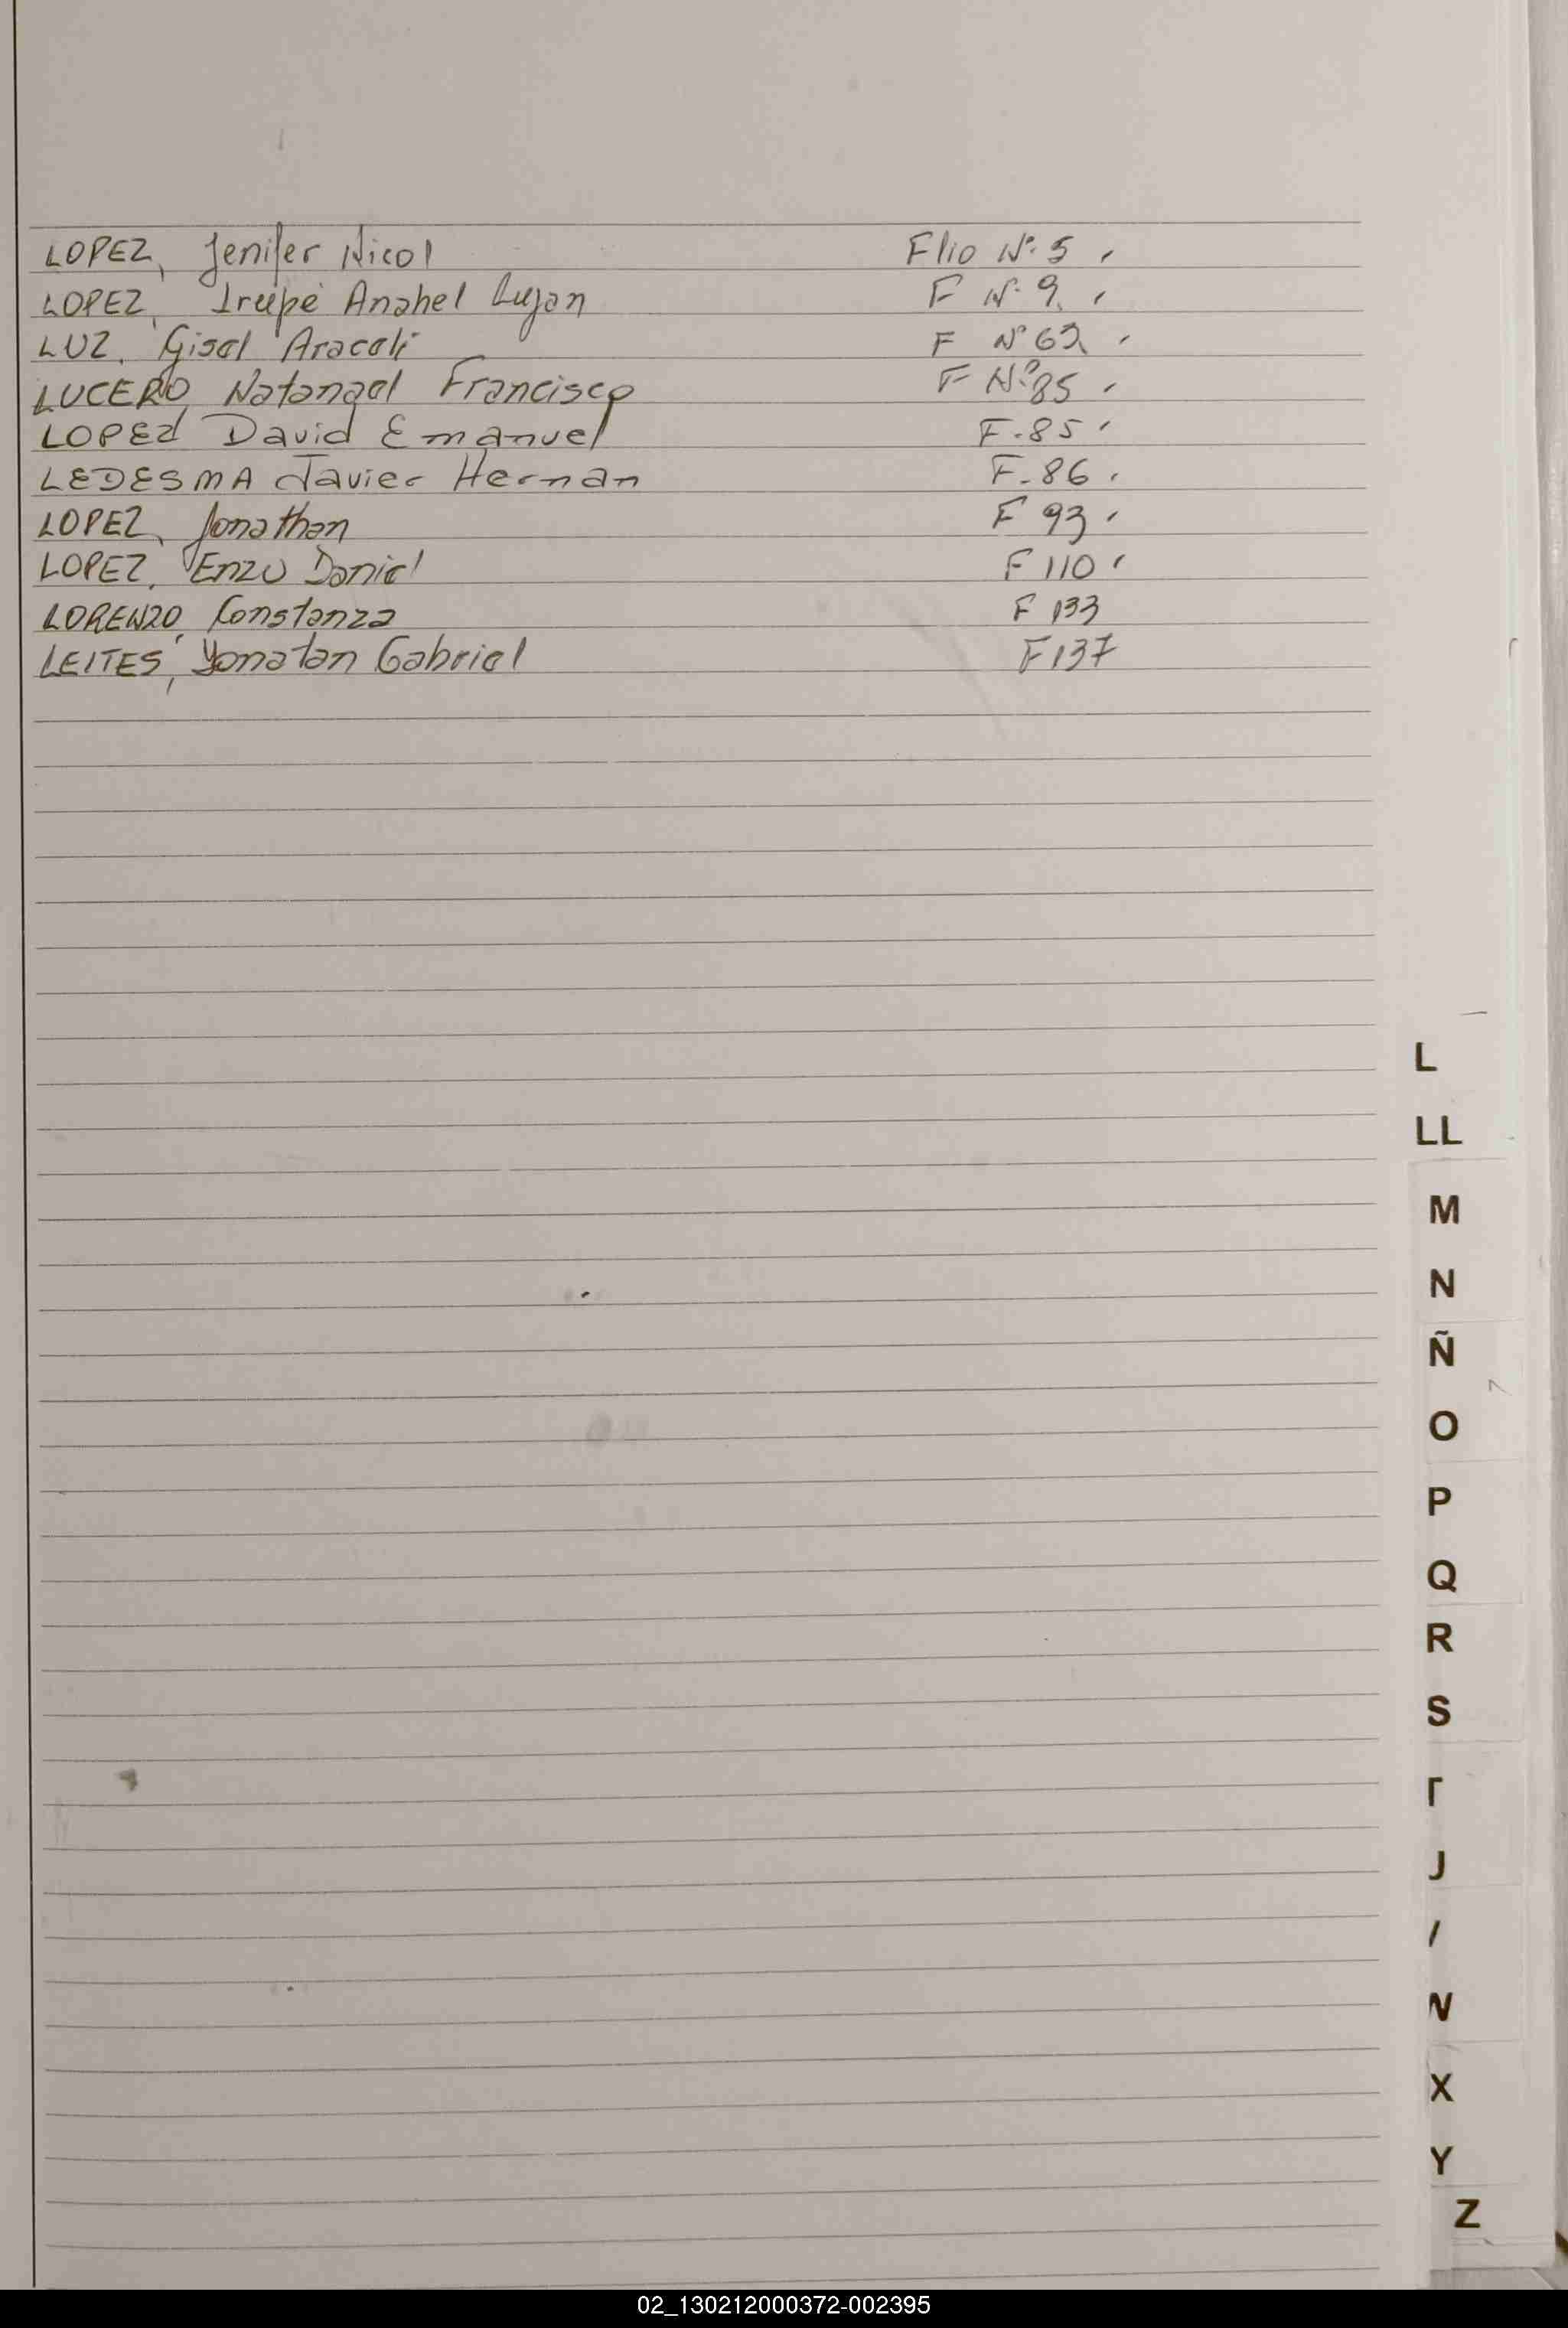 LOPEZ, Jenifer Nicol Flio Nº 5
LOPEZ, Irupé Anahel Lujan F Nº 9
LUZ, Gisel Araceli F Nº 62
LUCERO, Natanael Francisco F Nº 85
LOPEZ David Emanuel F-85
LEDESMA Javier Hernan F-86
LOPEZ, Jonathan F 93
LOPEZ, Enzo Daniel F 110
LORENZO, Constanza F 133
LEITES, Yonatan Gabriel F 137
L
LL
M
N
Ñ
O
P
Q
R
S
T
J
N
X
Y
Z
02_130212000372-002395